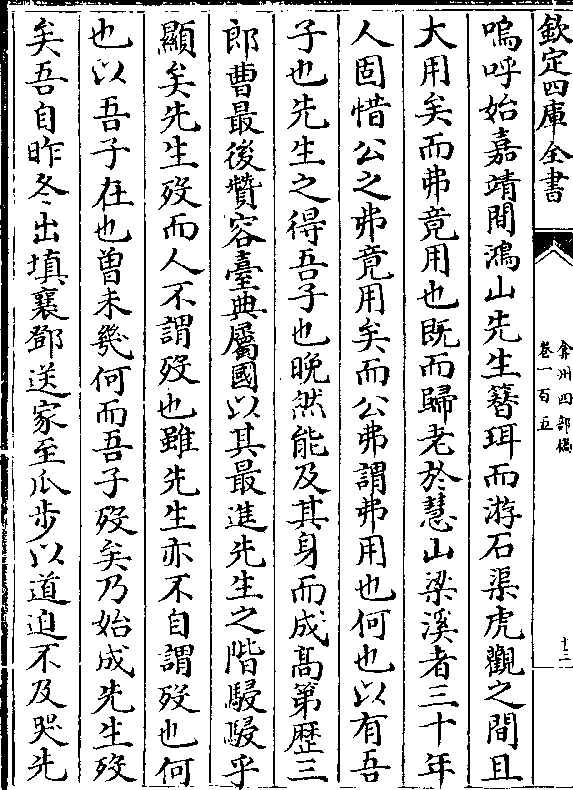 欽定四庫全書
弇州四部稿
卷一百五
十二
嗚呼始嘉靖間鴻山先生簪珥而游石渠虎觀之間且
大用矣而弗竟用也既而歸老於慧山梁溪者三十年
人固惜公之弗竟用矣而公弗謂弗用也何也以有吾
子也先生之得吾子也晚然能及其身而成髙第歴三
郎曹最後贊容臺典屬國以其最進先生之階駸駸乎
顯矣先生歿而人不謂歿也雖先生亦不自謂歿也何
也以吾子在也曽未幾何而吾子歿矣乃始成先生歿
矣吾自昨冬出填襄鄧送家至瓜步以道迫不及哭先